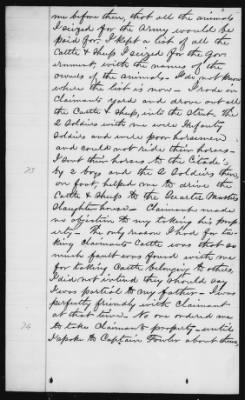 me before them, that all the animals
I seized for the Army would be
paid for. I kept a list of all the
Cattle & Sheep I seized for the Gov
ernment, with the names of the
owners of the animals. I do not know
where the list is now - I rode in
Claimants yard and drove out all
the Cattle & Sheep, with the Steeds. The
2 Soldiers with me were Infantry
Soldiers and were poor horsemen
and could not ride their horses -
I sent their horses to the Citadel
73 by 2 boys and the 2 Soldiers then
on foot, helped me to drive the
Cattle & Sheep to the Quarter Masters
Slaughter house - Claimant made
no objection to my taking his prop
erty - The only reason I had for ta
king claimants Cattle was that so
much fault was found with me
for taking Cattle belonging to others,
I did not intend they should say
I was partial to my father - I was
perfectly friendly with Claimant
at that time. No one ordered me
74 to take Claimants property - until
I spoke to Captain Fowler about